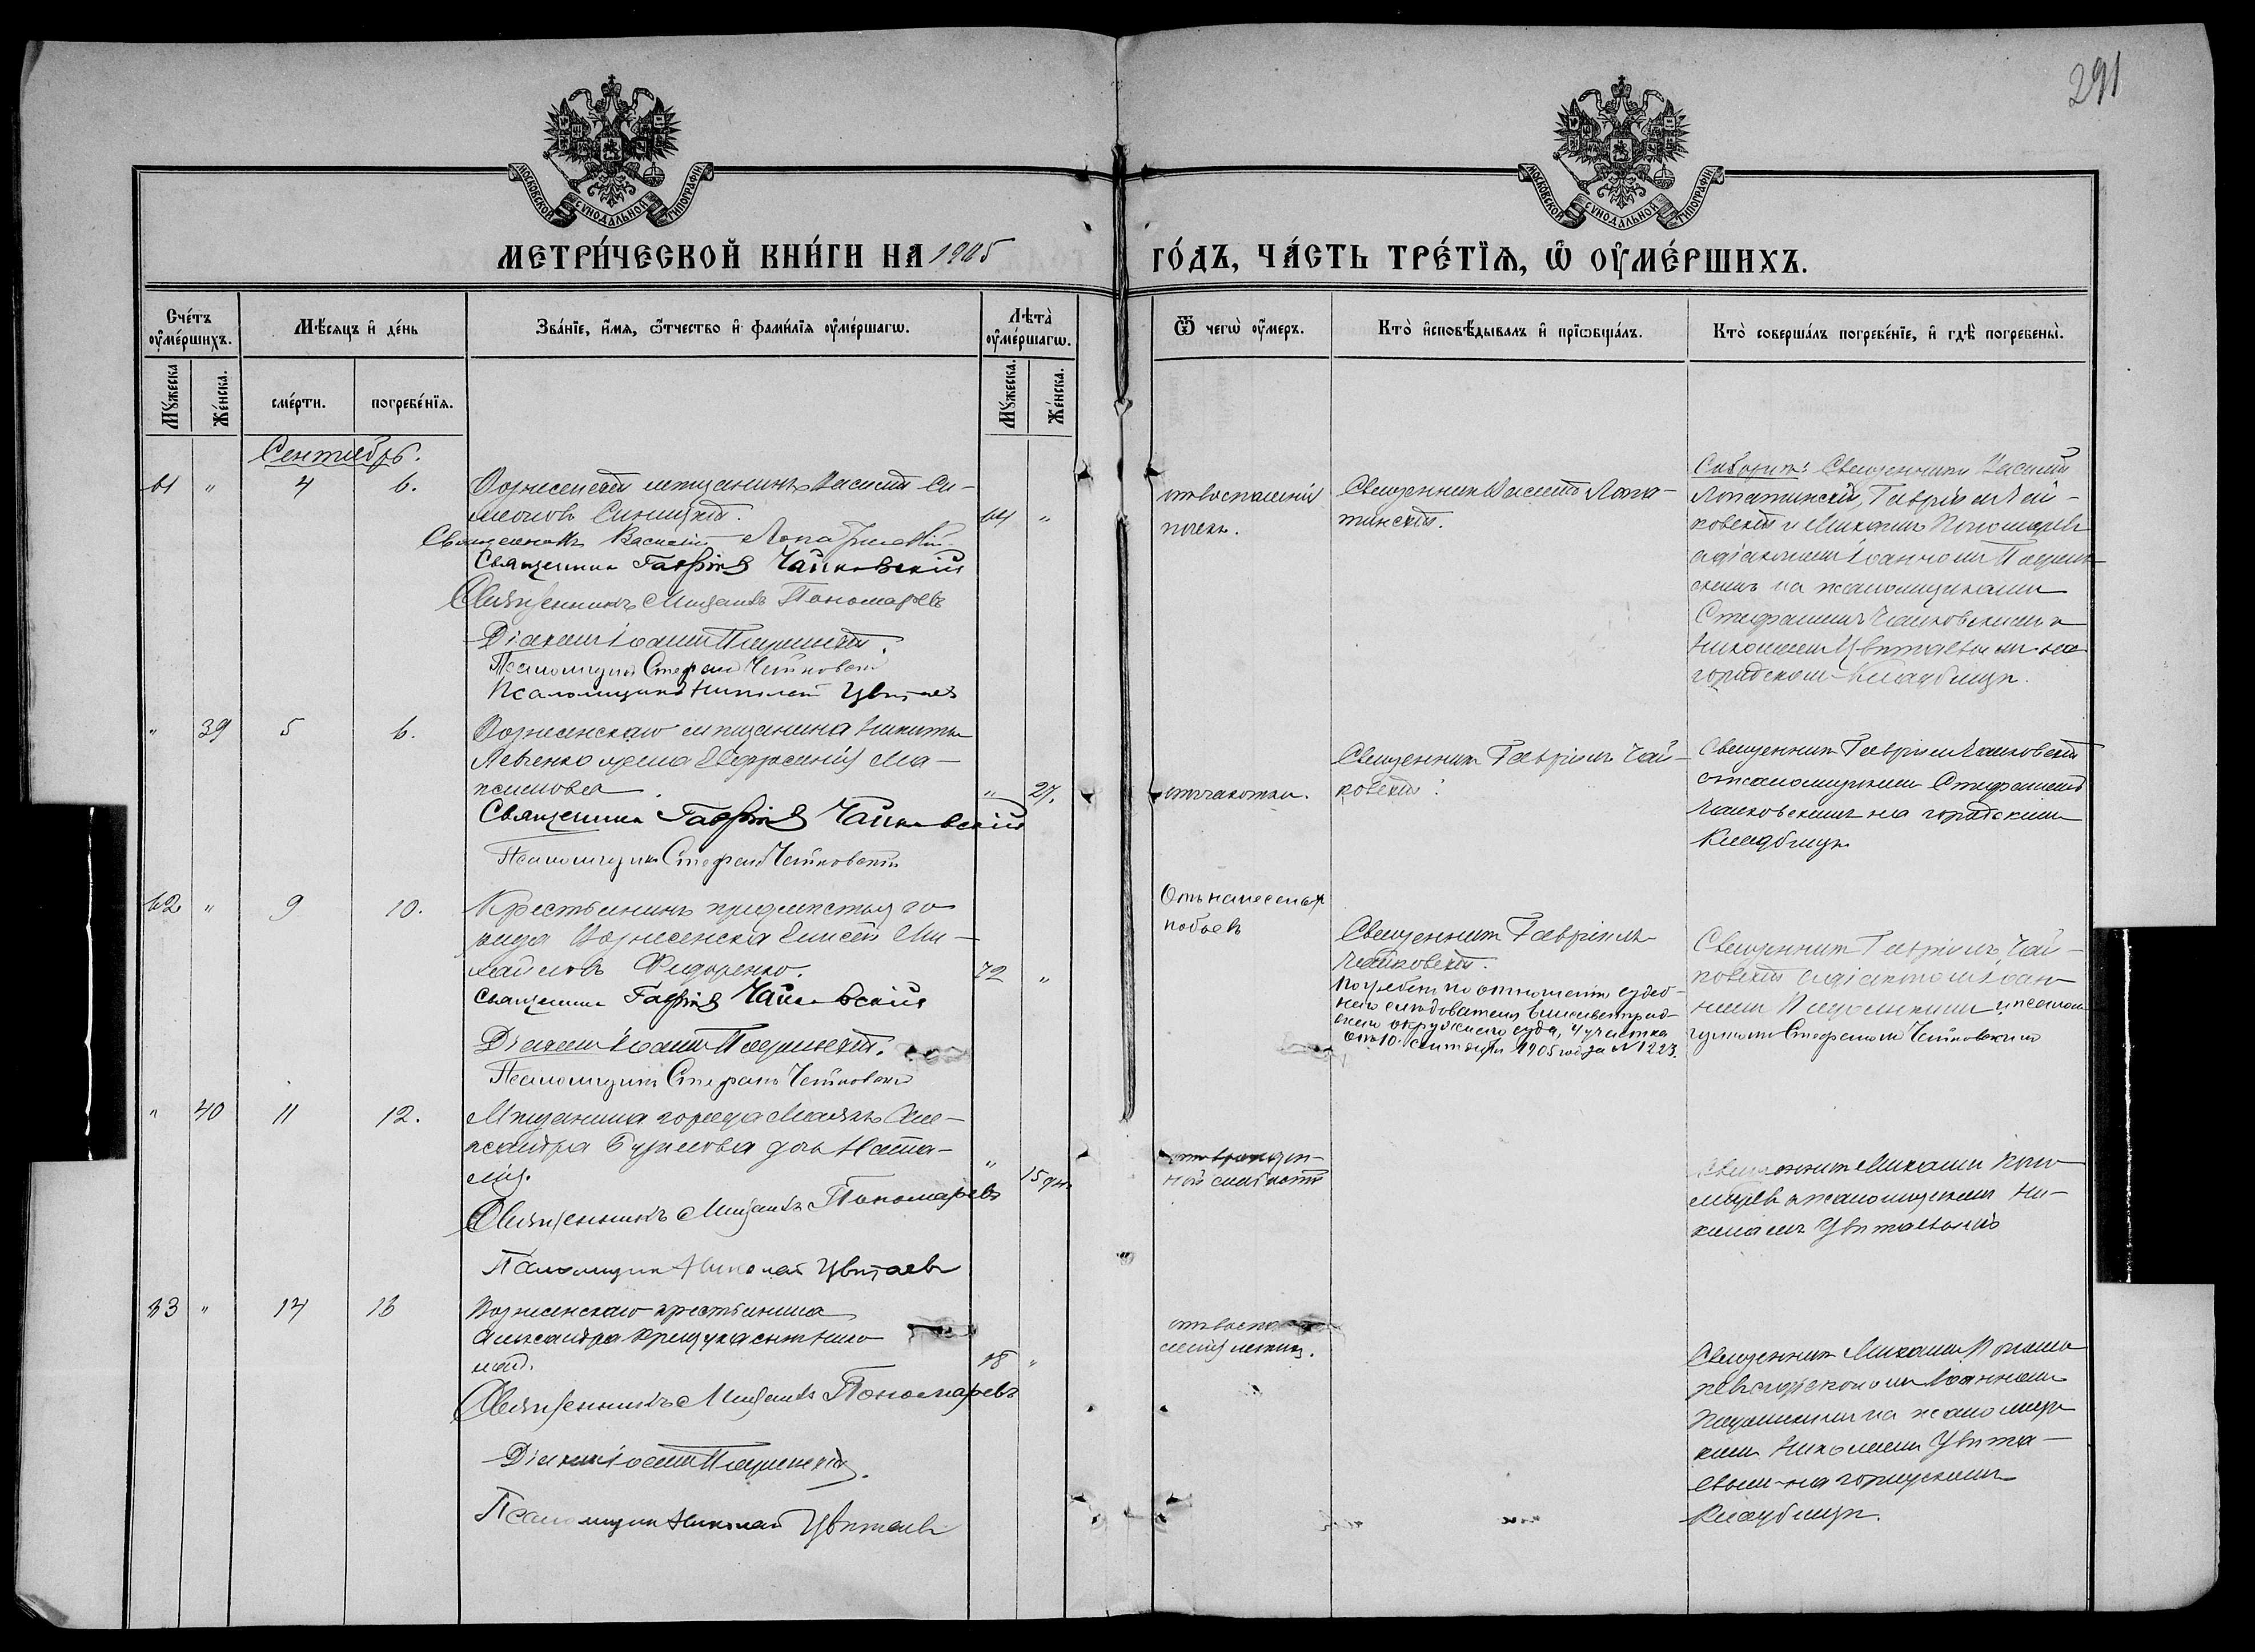 291
МОСКОВСКОЙ СѴНОДАЛЬНОЙ ТИПОГРАФІИ
МОСКОВСКОЙ СѴНОДАЛЬНОЙ ТИПОГРАФІИ
МЕТРИ́ЧЕСКОЙ КНИ́ГИ НА 1905
ГО́ДЪ, ЧА́СТЬ ТРЕ́ТЇѦ, Ѡ҆ ОУ҆МЕ́РШИХЪ.
Сче́тъ оу҆ме́ршихъ.
Мѣ́сяцъ и҆ де́нь
Зва́нїе, и҆́мѧ, ѻ҆́тчество и҆ фами́лїѧ оу҆ме́ршагѡ.
Лѣта̀ оу҆ме́ршагѡ.
Ѿ чегѡ̀ оу҆́меръ.
Кто̀ и҆сповѣ́дывалъ и҆ прїѡбща́лъ.
Кто̀ соверша́лъ погребе́нїе, и҆ гдѣ̀ погребены̀.
Му́жеска
Же́нска.
сме́рти.
погребе́нїѧ.
Му́жеска.
Же́нска.
Сентябрь.
61 " 4 6.
Вознесенскій мѣщанинъ Василій Си-
меоновъ Синицкій.
64 "
Священникъ Василій Лопатинскій
Священникъ Гавріилъ Чайковскій
Священникъ Михаилъ Пономаревъ
Діаконъ Іоаннъ
Псаломщикъ Стефанъ Чайковскій
Псаломщикъ Николай Цвѣтаев
отъ воспаленія
почекъ.
Священникъ Василій Лопа-
тинскій.
Соборнѣ: Священники Василій
Лопатинскій, Гавріилъ Чай-
ковскій и Михаилъ Пономаревъ
съ діакономъ Іоанномъ
псаломщиками
Стефаномъ Чайковскимъ и
Николаемъ Цвѣтаевымъ на
городскомъ кладбищѣ.
" 39 5 6.
Вознесенскаго мѣщанина Никиты
Левченко жена Евфросинія Ма-
ксимова.
" 27.
Священникъ Гавріилъ Чайковскій
Псаломщикъ Стефанъ Чайковскій
отъ чахотки.
Священникъ Гавріилъ Чай-
ковскій.
Священникъ Гавріилъ Чайковскій
съ псаломщикомъ Стефаномъ
Чайковскимъ на городскомъ
кладбищѣ
62 " 9 10.
Крестьянинъ предмѣстья го-
рода Вознесенска Елисей Ми-
хайловъ Федоренко.
72 "
Священникъ Гавріилъ Чайковскій
Діаконъ Іоаннъ
Псаломщикъ Стефанъ Чайковскій
Отъ нанесеныхъ
побоевъ
Священникъ Гавріилъ
Чайковскій.
Погребенъ по отношенію судеб-
наго слѣдователя Елисаветград-
скаго окружнаго суда, 4 участка
отъ 10 Сентября 1905 года № 1223.
Священникъ Гавріилъ Чай-
ковскій съ діакономъ Іоан-
номъ и псалом-
щикомъ Стефаномъ Чайковскимъ
" 40 11 12.
Мѣщанина города Маякъ Але-
ксандра дочь Ната-
лія.
" 15 дн.
Священникъ Михаилъ Пономаревъ
Псаломщикъ Николай Цвѣтаевъ
отъ врожден-
ной слабости
Священникъ Михаилъ Поно-
маревъ съ псаломщикомъ Ни-
колаемъ Цвѣтаевымъ
63 " 14 16
Вознесенскаго крестьянина
Александра Крещука сынъ Нико-
лай.
18 "
Священникъ Михаилъ Пономаревъ
Діаконъ Іоаннъ
Псаломщикъ Николай Цвѣтаевъ
отъ воспа-
ленія легкихъ.
Священникъ Михаилъ Понома-
ревъ съ діакономъ Іоанномъ
псаломщи-
комъ Николаемъ Цвѣта-
евымъ на городскомъ
кладбищѣ.